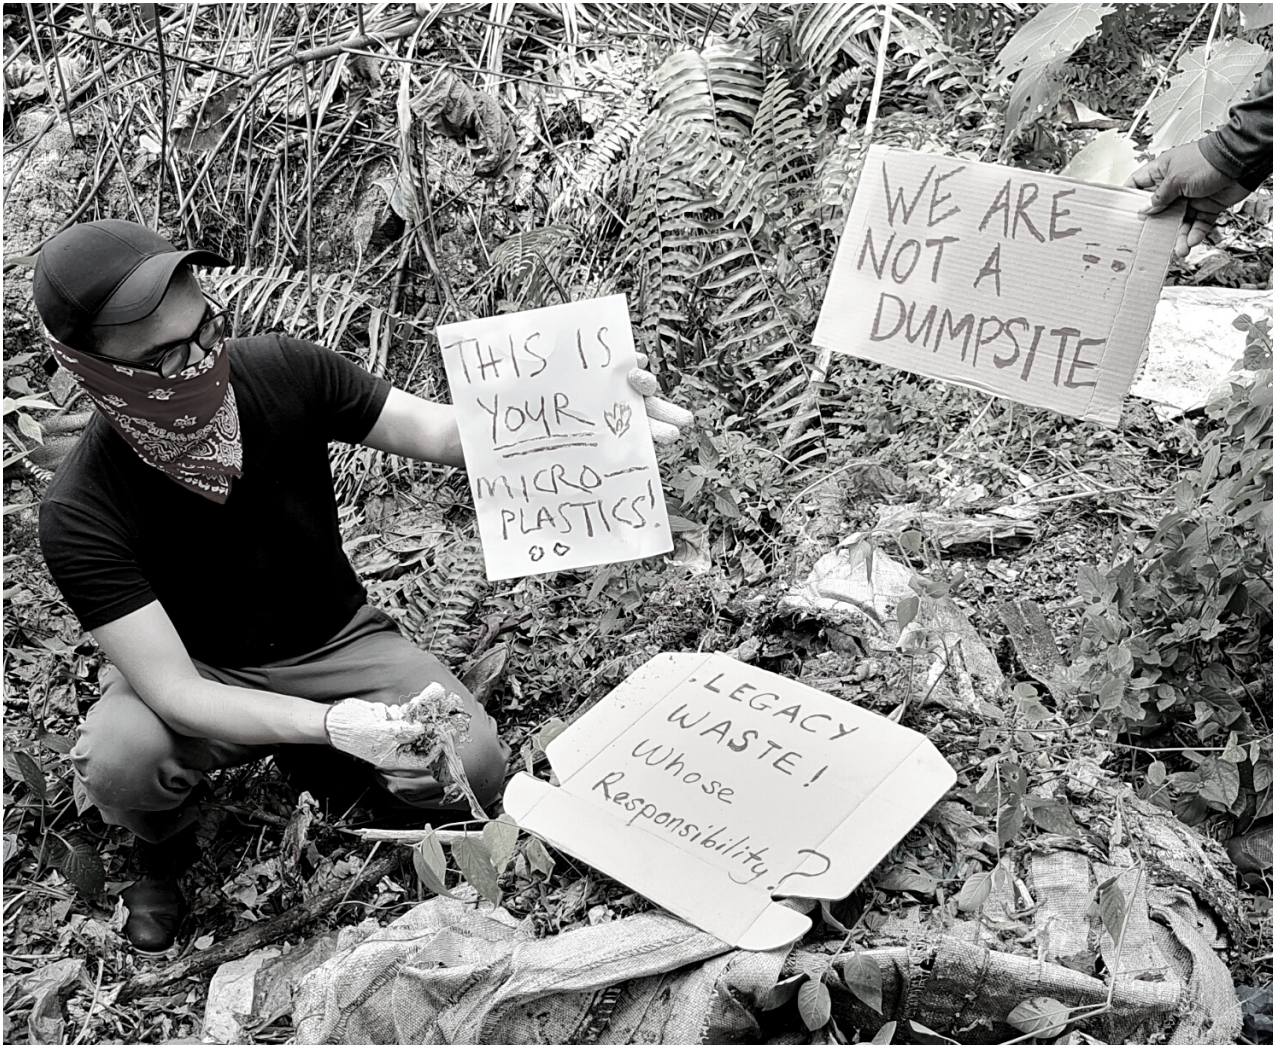 THIS IS
YOUR
MICRO-
PLASTICS!
WE ARE
NOT A
DUMPSITE
.LEGACY
WASTE!
Whose
Responsibility?